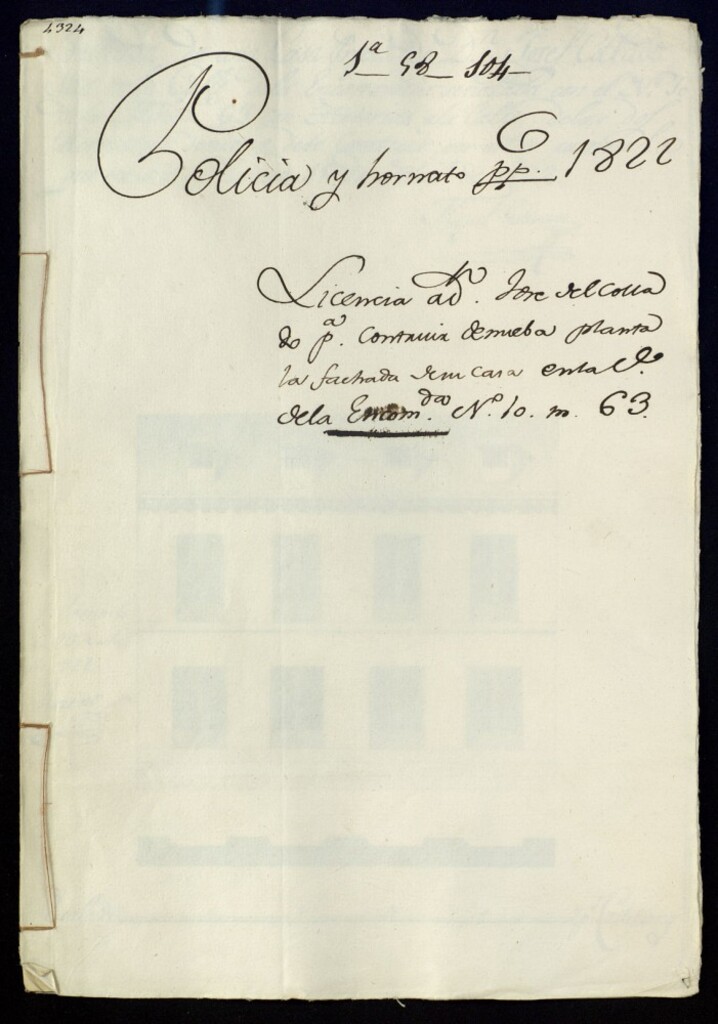 4324
1ª 58 104
Policia y hornato pp.co 1822
Licencia a Dn. Jose del Colla
do pª. Contruir de nueba planta
la fachada de su Casa en la Ce.
de la Encomda. No. 10. m. 63.